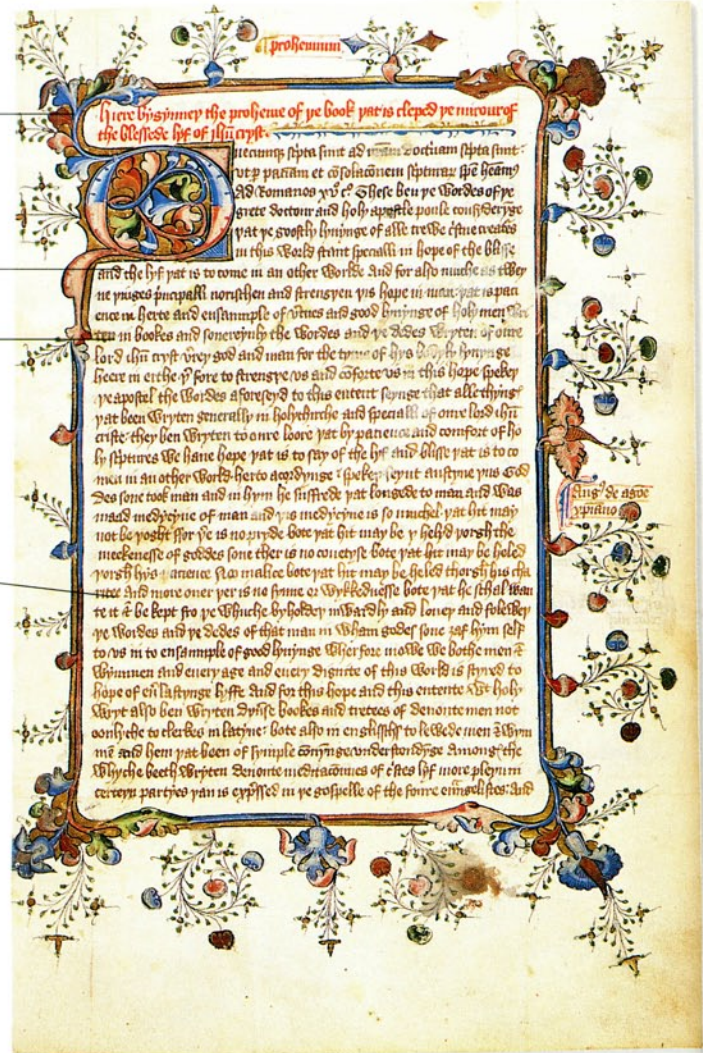 prohemium
Here bygynneþ the proheme of þe book þat is cleped þe mirour of
the blessede lyf of jhū cryst.
Quecumq; scpta sunt ad nram doctrinam scpta sunt:
vt p pacīam et cōsolacōnem scpturar spē heamꝰ
Ad Romanos xvᵒ cᵒ These beu þe wordes of þe
grete doctour and holy apostle poule consederyge
þat þe gostly lyuynge of alle trewe cristne creatures
in this world stant specialli in hope of the blisse
and the lyf þat is to come in an other worlde And for also muche as twey
ne þinges pncipalli norischen and strengyen þis hope in man: þat is paci
ence in herte and ensaumple of vtues and good lyuynge of holy men Wri
ten in bookes and souereynly the wordes and þe dedes wryten of oure
lord jhū cryst verey god and man for the tyme of hys bodyly lyuynge
heere in erthe þᵉ fore to strengye vs and cōforte vs in this hope spekeþ
þe apostal the wordes aforeseyd to this entent seynge that alle thynges
þat been wryten generally in holychirche and specialli of oure lord jhū
criste: they ben wryten to oure loore þat by pacience and comfort of ho
ly scptures we haue hope þat is to say of the lyf and blisse þat is to co
men in an other world herto acordynge spekeþ seynt austyne þus God
des sone took man and in hym he suffrede þat longede to man and was
maad medycyne of man and þis medycyne is so muchel þat hit may
not be þoght ffor þᵉ is no pryde bote þat hit may be yheled þorgh the
meekenesse of goddes sone ther is no coueityse bote þat hit may be heled
þorgh hys pacience No malice bote þat hit may be heled thorgh his cha
ritee and more ouer þer is no synne or wykkednesse bote þat he schal wan
te it & be kept fro þe whuche byholdeþ inwardly and loueþ and foleweþ
þe wordes and þe dedes of that man in wham godes sone zaf hym self
to vs in to ensaumple of good lyuynge Wherfore nowe we bothe men &
wymmen and euery age and euery dignite of this world is styred to
hope of eūlastynge lyffe And for this hope and this entente wt holy
wryt also ben wryten dyuse bookes and tretees of deuoute men not
oonlyche to clerkes in latyne: bote also in englissch to lewede men & wym
mē and hem þat been of symple conynge vnderstondyge Amonge the
whyche beeth wryten deuoute meditacōunes of cstes lyf more pleyn in
certeyn partyes þan is expssed in þe gospelle of the foure euāngelistes: And
Augꝰ de agōe
xpiano